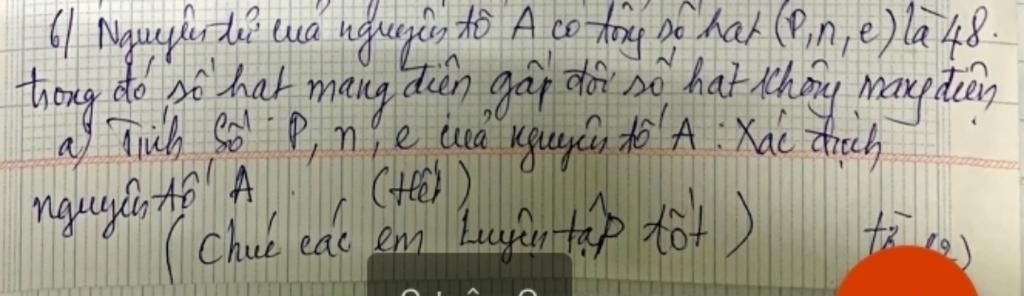 6/ Nguyên tử của nguyên tố A có tổng số hạt (P, n, e) là 48.
trong đó số hạt mang điện gấp đôi số hạt không mang điện
a) Tính số P, n, e của nguyên tố A : Xác định
nguyên tố A . (Hết)
( Chúc các em luyện tập tốt )